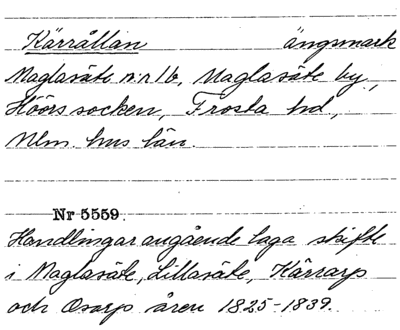 Kärrållan ängsmark
Maglasäte n:r 16, Maglasäte by,
Höörs socken, Frosta hd,
Mlm. hus län.
Nr 5559.
Handlingar angående laga skifte
i Maglasäte, Lillasäte, Kärrarp
och Osarp åren 1825-1839.